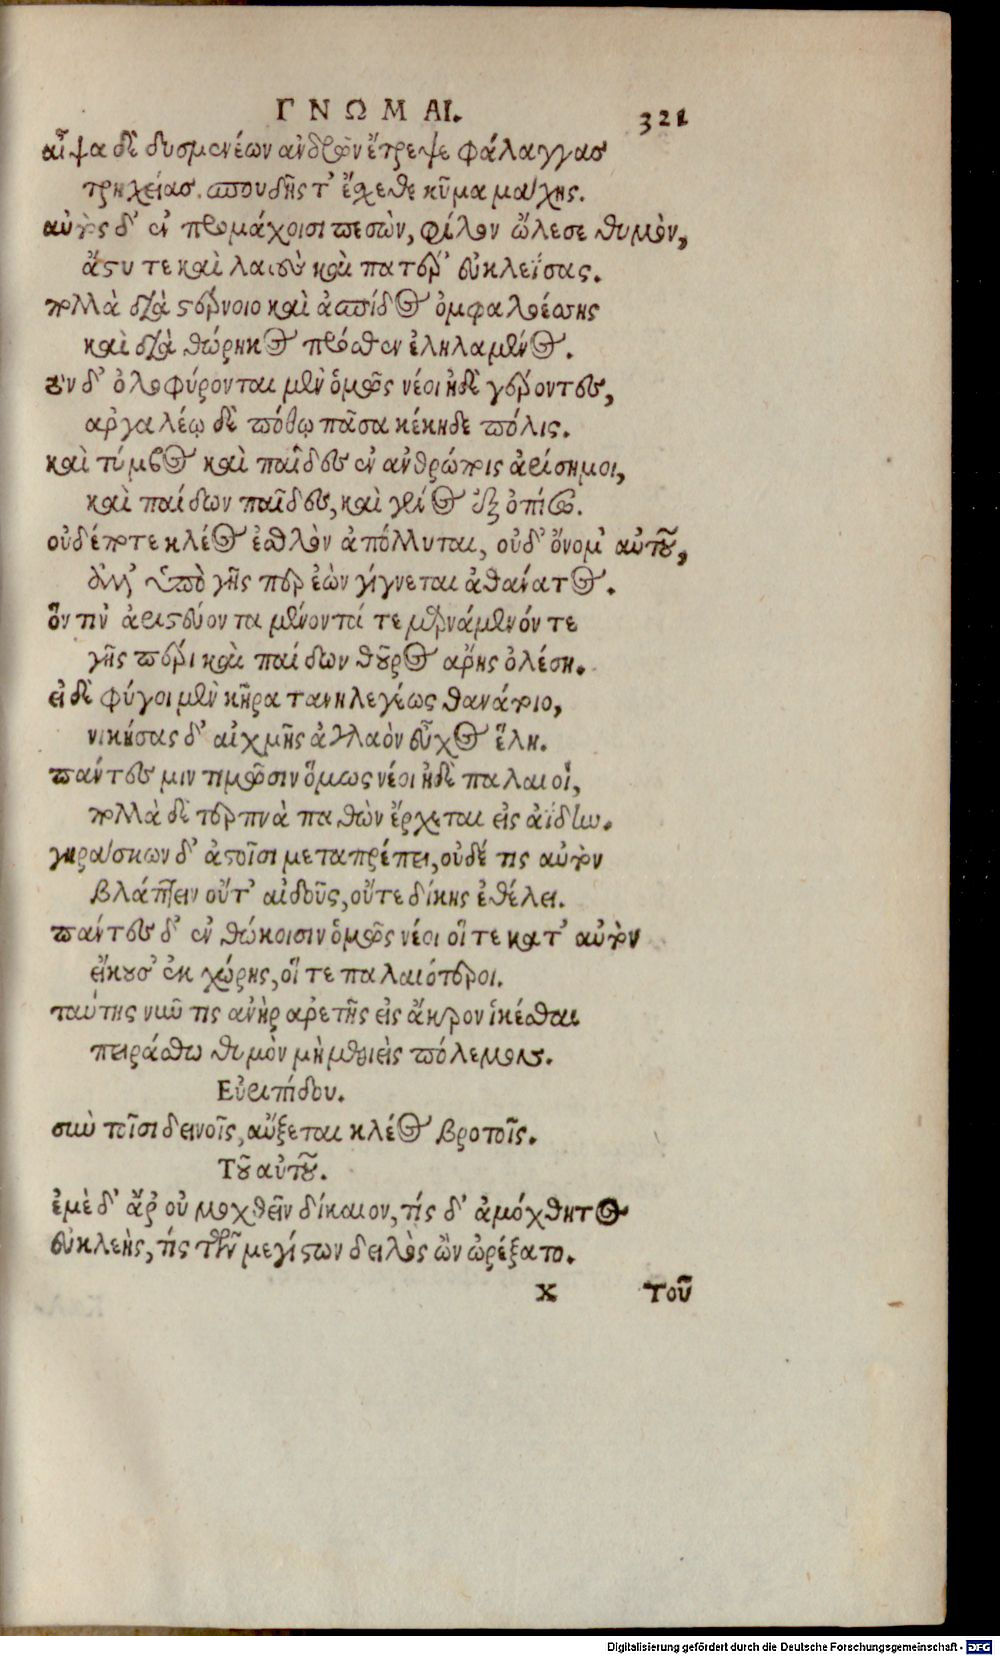 ΓΝΩΜΑΙ. 321
αἶψα δὲ δυσμενέων ἀνδρῶν ἔτρεψε φάλαγγας
τρηχείας. σπουδῆς τ' ἔσχεθε κῦμα μάχης.
αὐτὸς δ' ἐν προμάχοισι πεσὼν, φίλον ὤλεσε θυμὸν,
ἄστυ τε καὶ λαοὺς καὶ πατέρ' εὐκλεΐσας.
πολλὰ διὰ στέρνοιο καὶ ἀσπίδος ὀμφαλοέσσης
καὶ διὰ θώρηκος πρόσθεν ἐληλαμένος.
τὸν δ' ὀλοφύρονται μὲν ὁμῶς νέοι ἠδὲ γέροντες,
ἀργαλέῳ δὲ πόθῳ πᾶσα κέκηδε πόλις.
καὶ τύμβος καὶ παῖδες ἐν ἀνθρώποις ἀρίσημοι,
καὶ παίδων παῖδες, καὶ γένος ἐξοπίσω.
οὐδέποτε κλέος ἐσθλὸν ἀπόλλυται, οὐδ' ὄνομ' αὐτοῦ,
ἀλλ' ὑπὸ γῆς περ ἐὼν γίγνεται ἀθάνατος.
ὅν τιν' ἀριστεύοντα μένοντά τε μαρνάμενόν τε
γῆς πέρι καὶ παίδων θοῦρος ἄρης ὀλέσῃ.
εἰ δὲ φύγοι μὲν κῆρα τανηλεγέως θανάτοιο,
νικήσας δ' αἰχμῆς ἀγλαὸν εὖχος ἕλῃ.
πάντες μιν τιμῶσιν ὅμως νέοι ἠδὲ παλαιοὶ,
πολλὰ δὲ τερπνὰ παθὼν ἔρχεται εἰς ἀΐδην.
γηράσκων δ' ἀστοῖσι μεταπρέπει, οὐδέ τις αὐτὸν
βλάπτειν οὔτ' αἰδοῦς, οὔτε δίκης ἐθέλει.
πάντες δ' ἐν θώκοισιν ὁμῶς νέοι οἵ τε κατ' αὐτὸν
εἴκουσ' ἐκ χώρης, οἵ τε παλαιότεροι.
ταύτης νῦν τις ἀνὴρ ἀρετῆς εἰς ἄκρον ἱκέσθαι
πειράσθω θυμὸν μὴ μεθιεὶς πόλεμον.
Εὐριπίδου.
σὺν τοῖσι δεινοῖς, αὔξεται κλέος βροτοῖς.
Τοῦ αὐτοῦ.
ἐμὲ δ' ἄρ' οὐ μοχθεῖν δίκαιον, τίς δ' ἀμόχθητος
εὐκλεὴς, τίς τῶν μεγίστων δειλὸς ὢν ὠρέξατο.
x τοῦ
Digitalisierung gefördert durch die Deutsche Forschungsgemeinschaft - DFG